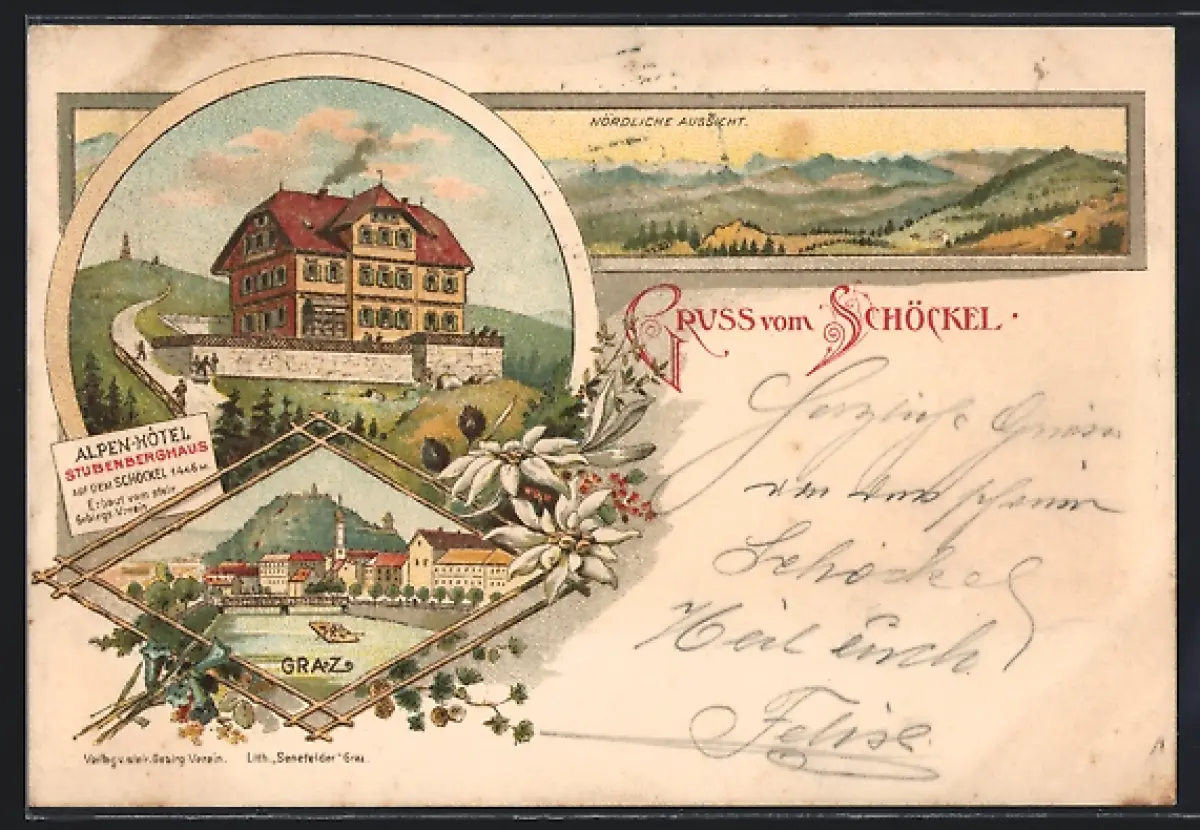 NÖRDLICHE AUSSICHT.
GRUSS vom SCHÖCKEL.
ALPEN-HÔTEL
STUBENBERGHAUS
auf DEM SCHÖCKEL 1446 m.
Erbaut vom steir.
Gebirgs-Verein
GRAZ
Verlag v. steir. Gebirg Verein.
Lith. „Senefelder" Graz.
Herzliche Grüsse
von
Schöckel
Heil euch